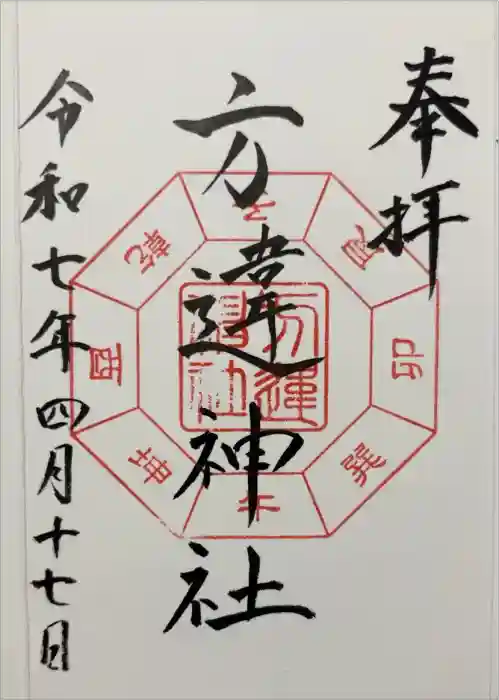 奉拝
方違神社
令和七年四月十七日
子
艮
卯
巽
午
坤
酉
乾
方違
神社